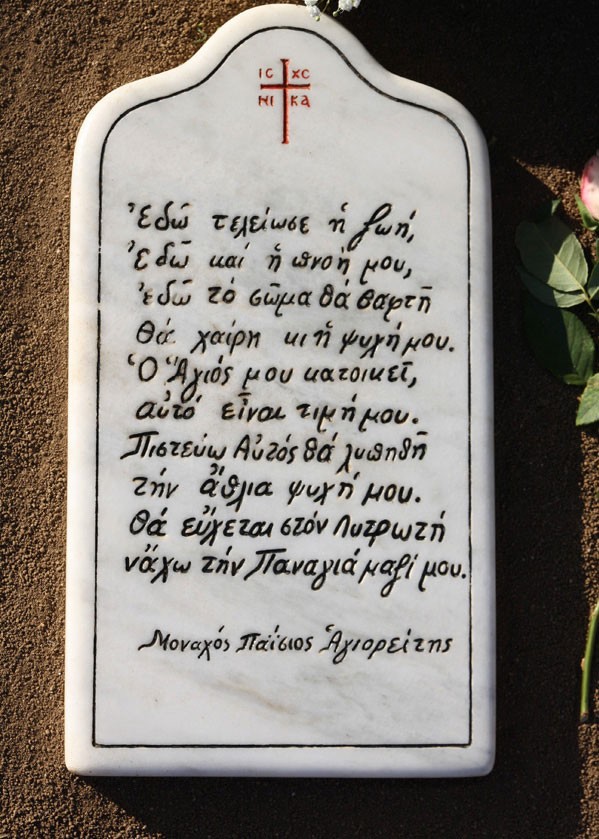 ΙC XC
ΝΙ ΚΑ
Ἐδῶ τελείωσε ἡ ζωή,
Ἐδῶ καί ἡ πνοή μου,
ἐδῶ τό σῶμα θά θαφτῆ
θά χαίρη κι ἡ ψυχή μου.
Ὁ Ἅγιός μου κατοικεῖ,
αὐτό εἶναι τιμή μου.
Πιστεύω Αὐτός θά λυπηθῆ
τήν ἄθλια ψυχή μου.
Θά εὔχεται στόν Λυτρωτή
νἄχω τήν Παναγιά μαζί μου.
Μοναχός Παΐσιος Ἁγιορείτης